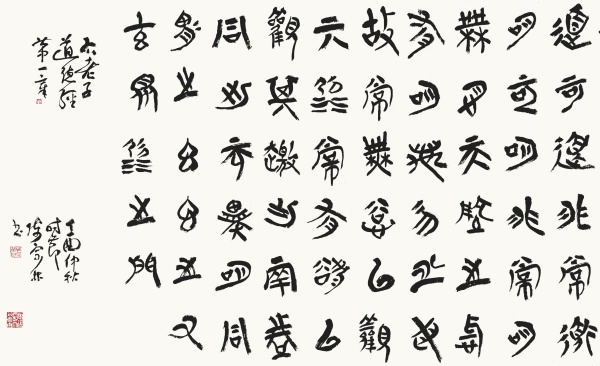 道可道非常道
名可名非常名
無名天地之始
有名萬物之母
故常無欲以觀
其妙常有欲以
觀其徼此兩者
同出而異名同
謂之玄玄之又
玄眾妙之門
老子
道德經
第一章
丁酉仲秋
時節
书